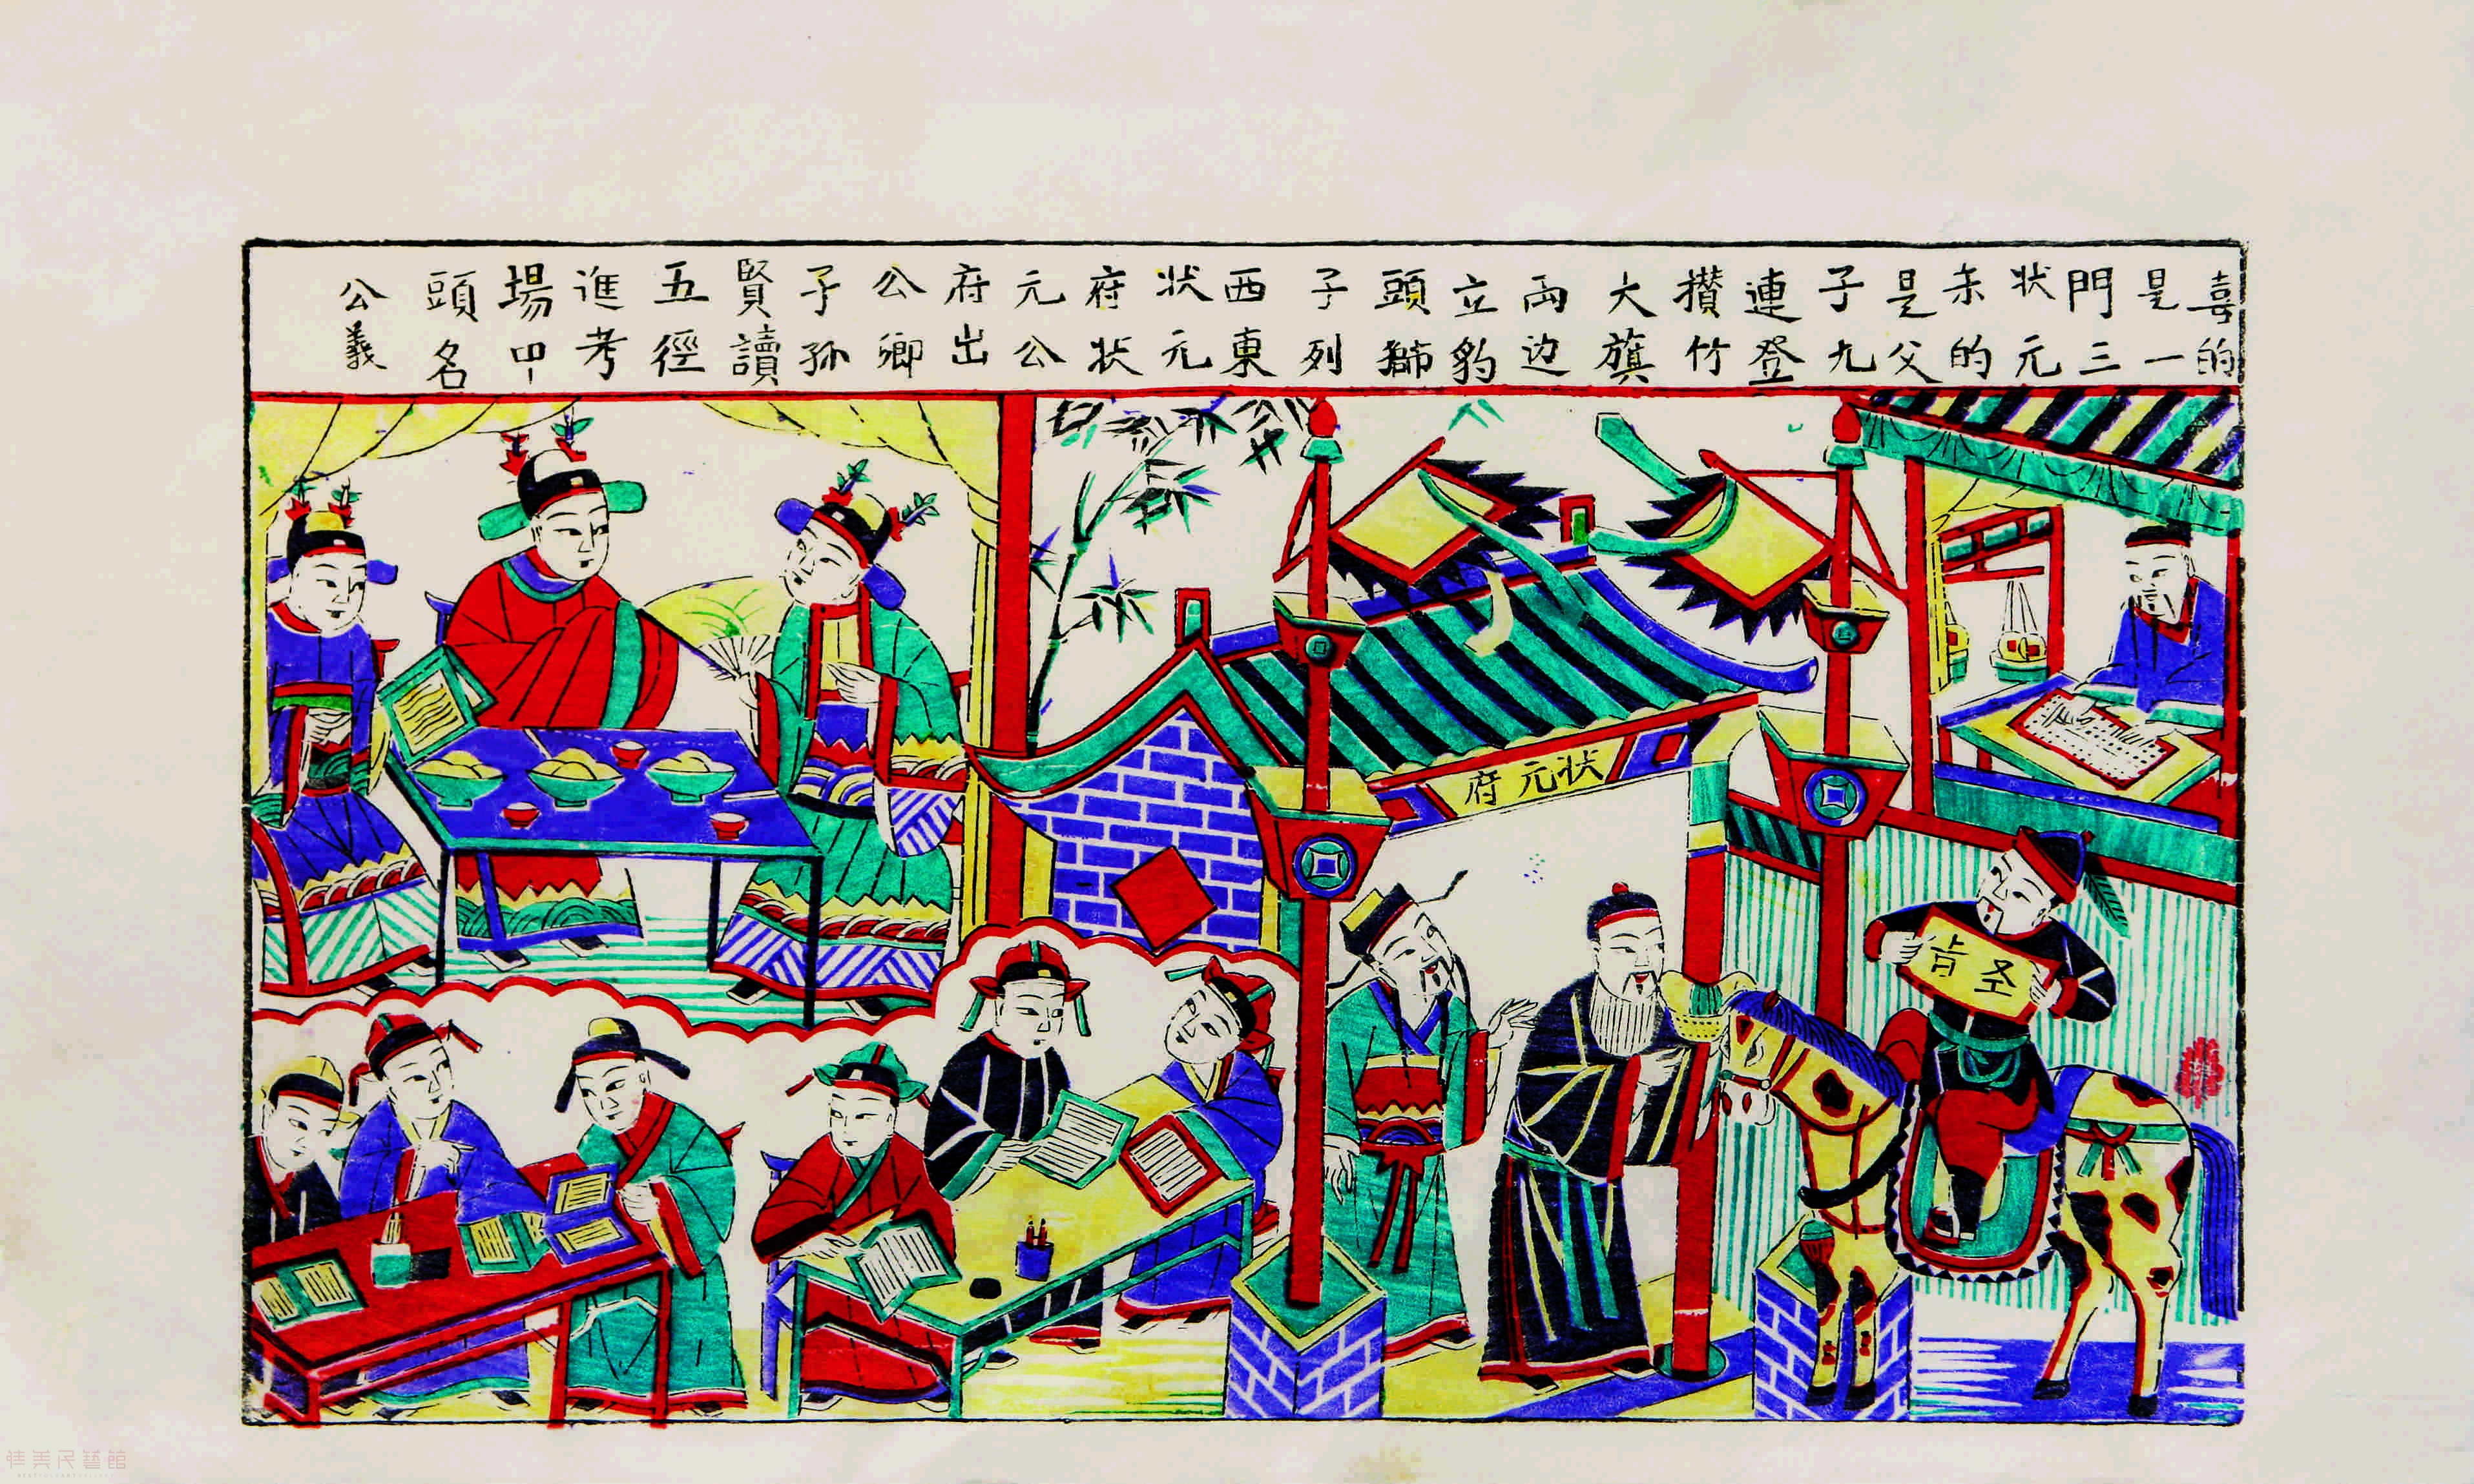 喜的
是一
門三
状元
来的
是父
子九
連登
攢竹
大旗
両边
立豹
頭獅
子列
西東
状元
府状
元公
府出
公卿
子孫
賢讀
五徑
進考
場中
頭名
公義
状元府
圣肯
佳美民藝館